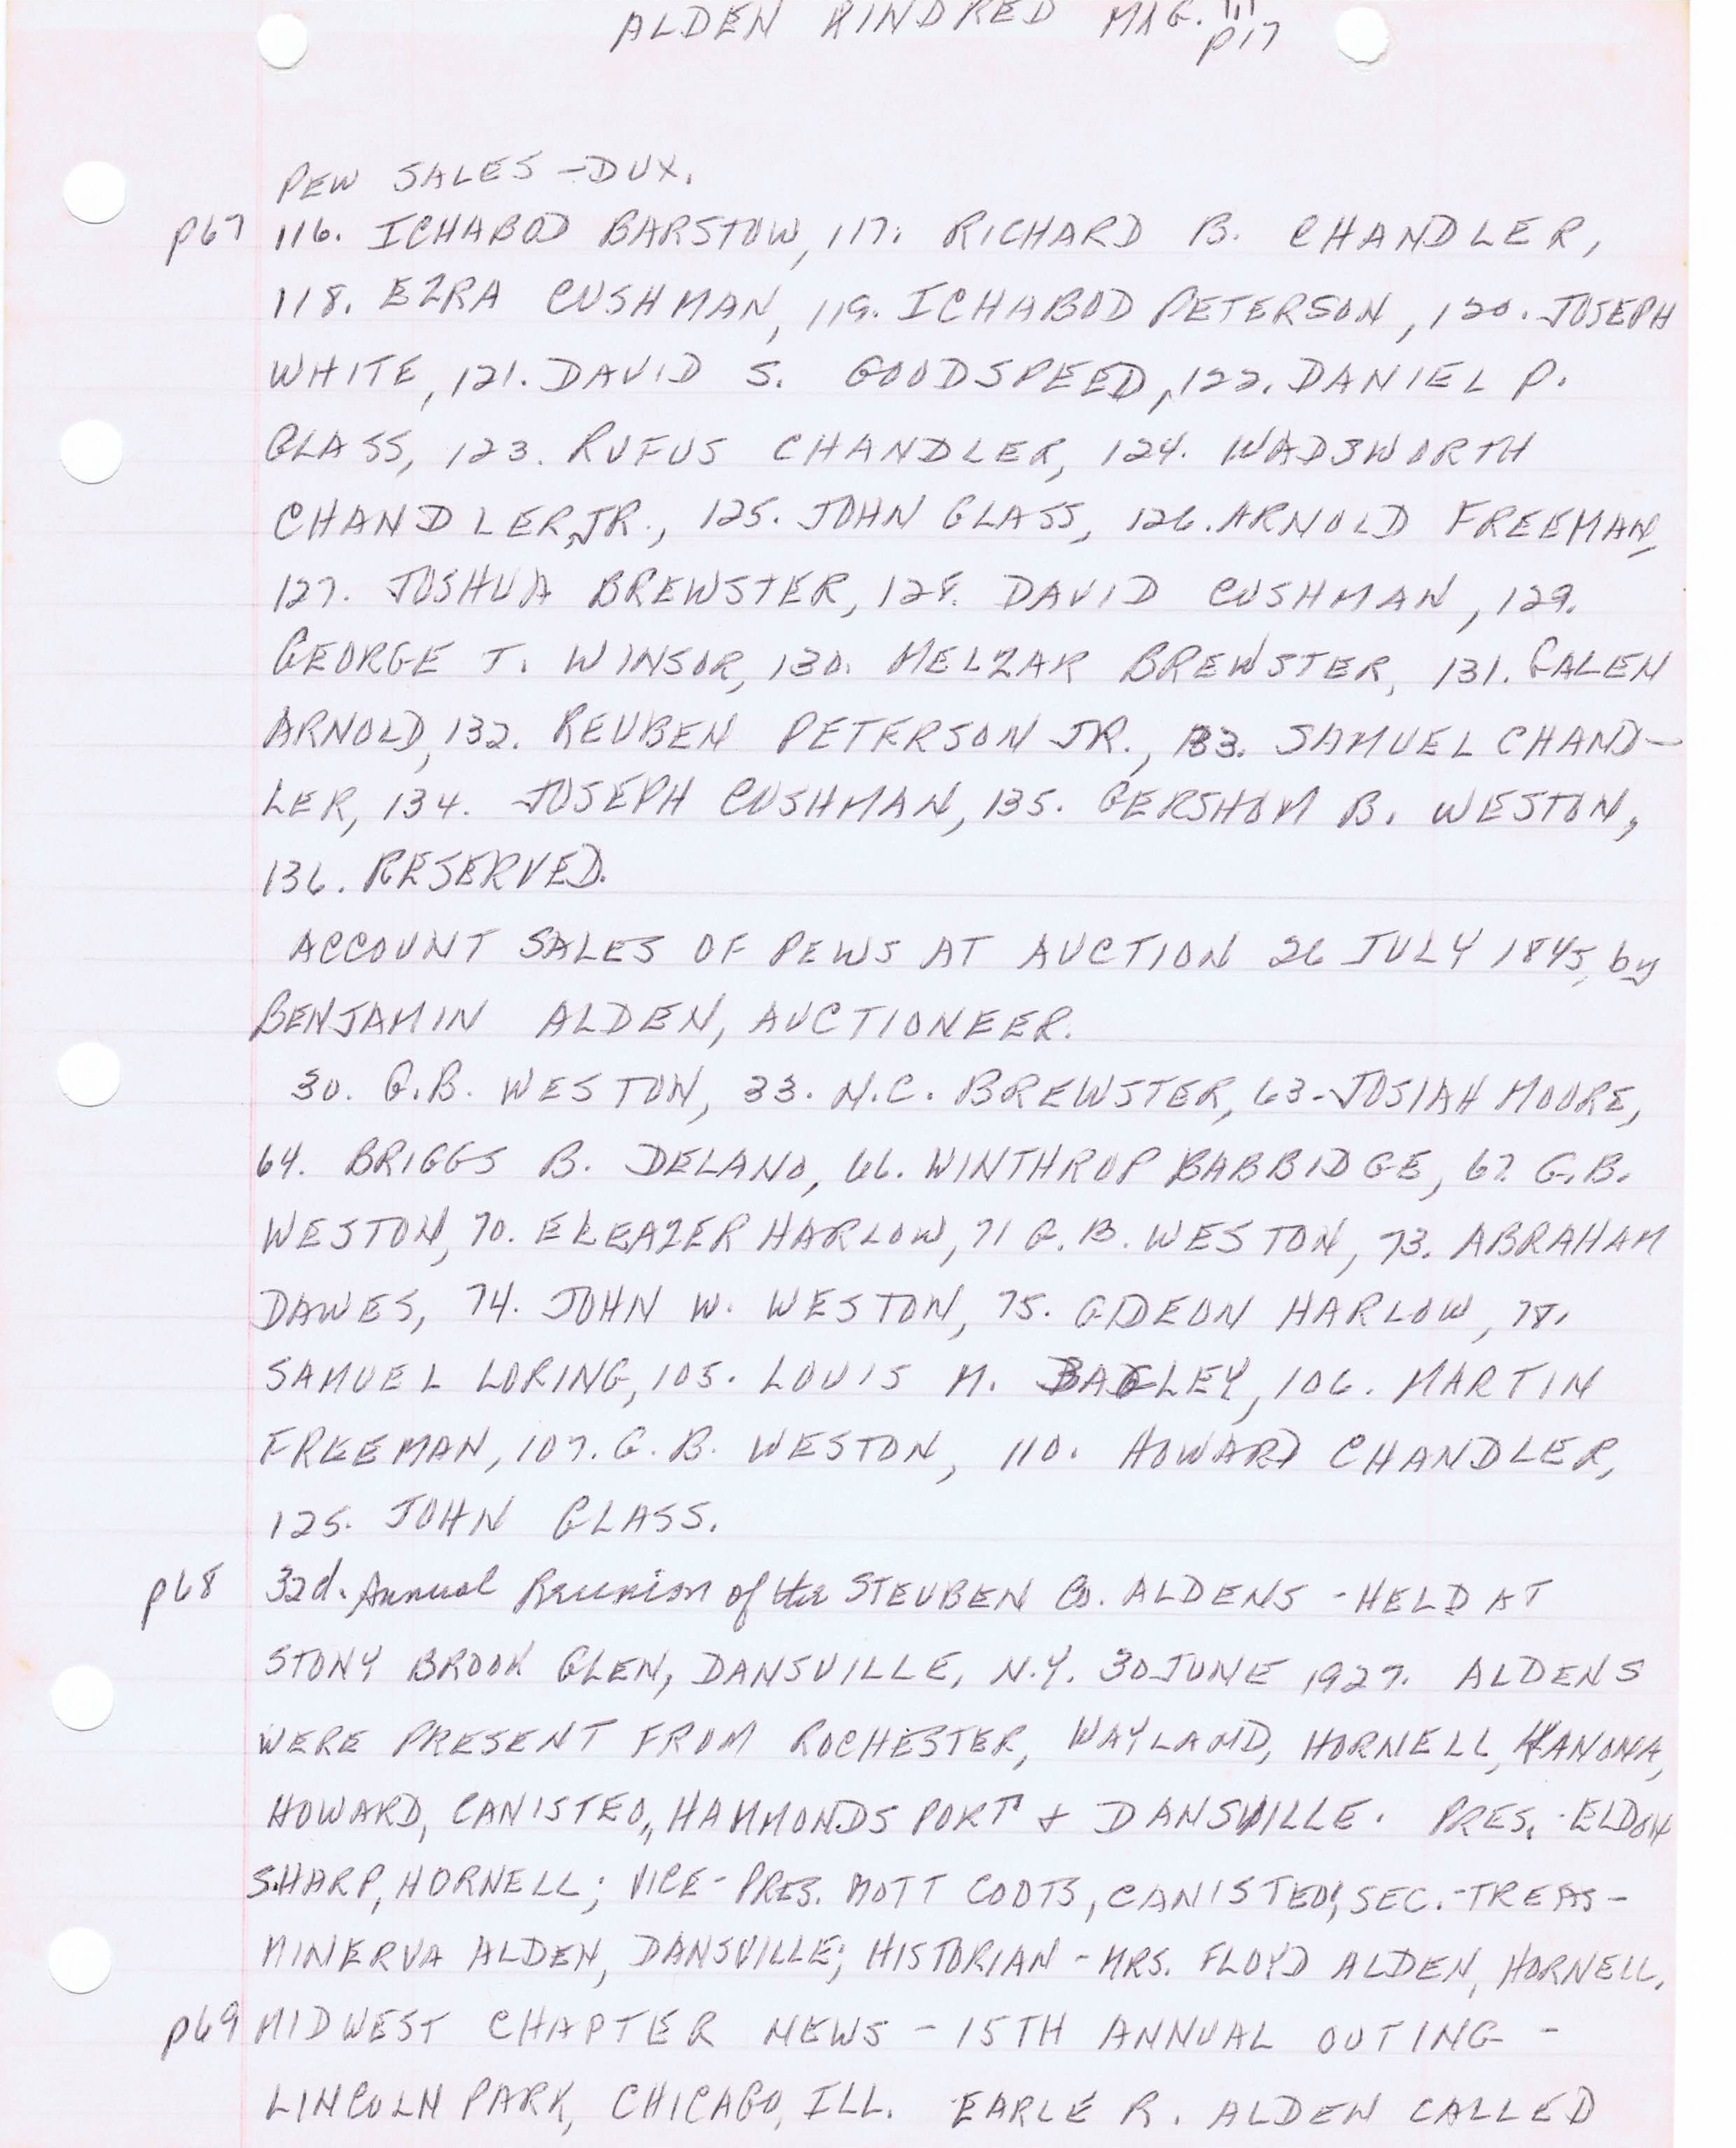 ALDEN KINDRED MAG. III
p17
PEW SALES - DUX.
p67 116. ICHABOD BARSTOW, 117. RICHARD B. CHANDLER,
118. EZRA CUSHMAN, 119. ICHABOD PETERSON, 120. JOSEPH
WHITE, 121. DAVID S. GOODSPEED, 122. DANIEL P.
GLASS, 123. RUFUS CHANDLER, 124. WADSWORTH
CHANDLER, JR., 125. JOHN GLASS, 126. ARNOLD FREEMAN,
127. JOSHUA BREWSTER, 128. DAVID CUSHMAN, 129.
GEORGE T. WINSOR, 130. MELZAR BREWSTER, 131. GALEN
ARNOLD, 132. REUBEN PETERSON JR., 133. SAMUEL CHAND-
LER, 134. JOSEPH CUSHMAN, 135. GERSHOM B. WESTON,
136. RESERVED.
ACCOUNT SALES OF PEWS AT AUCTION 26 JULY 1845, by
BENJAMIN ALDEN, AUCTIONEER.
30. G.B. WESTON, 33. N.C. BREWSTER, 63-JOSIAH MOORE,
64. BRIGGS B. DELANO, 66. WINTHROP BABBIDGE, 67. G.B.
WESTON, 70. ELEAZER HARLOW, 71 G.B. WESTON, 73. ABRAHAM
DAWES, 74. JOHN W. WESTON, 75. GIDEON HARLOW, 78.
SAMUEL LORING, 105. LOUIS M. BAGLEY, 106. MARTIN
FREEMAN, 107. G.B. WESTON, 110. HOWARD CHANDLER,
125. JOHN GLASS.
p68 32d. Annual Reunion of the STEUBEN Co. ALDENS - HELD AT
STONY BROOK GLEN, DANSVILLE, N.Y. 30 JUNE 1927. ALDENS
WERE PRESENT FROM ROCHESTER, WAYLAND, HORNELL, KANONA,
HOWARD, CANISTEO, HAMMONDSPORT & DANSVILLE. PRES. - ELDON
SHARP, HORNELL; VICE-PRES. MOTT COOTS, CANISTEO; SEC.-TREAS-
MINERVA ALDEN, DANSVILLE; HISTORIAN - MRS. FLOYD ALDEN, HORNELL.
p69 MIDWEST CHAPTER NEWS - 15TH ANNUAL OUTING -
LINCOLN PARK, CHICAGO, ILL. EARLE R. ALDEN CALLED